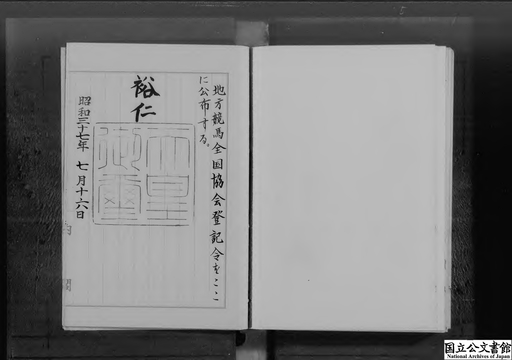 地方競馬全国協会登記令をここ
に公布する。
裕仁
天皇御璽
昭和三十七年七月十六日
内閣
国立公文書館
National Archives of Japan